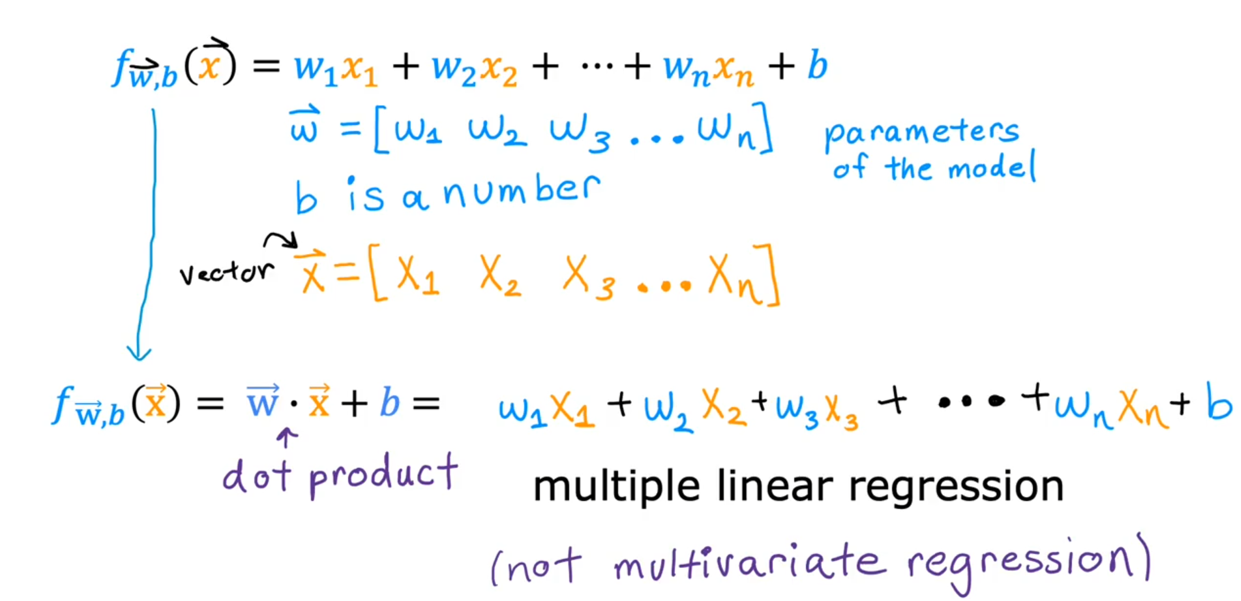 f_{\vec{w},b}(\vec{x}) = w₁x₁ + w₂x₂ + ⋯ + wₙxₙ + b
\vec{w} = [w₁ w₂ w₃ ... wₙ] parameters
of the model
b is a number
vector \vec{x} = [x₁ x₂ x₃ ... xₙ]
f_{\vec{w},b}(\vec{x}) = \vec{w} · \vec{x} + b = w₁x₁ + w₂x₂ + w₃x₃ + ⋯ + wₙxₙ + b
dot product
multiple linear regression
(not multivariate regression)